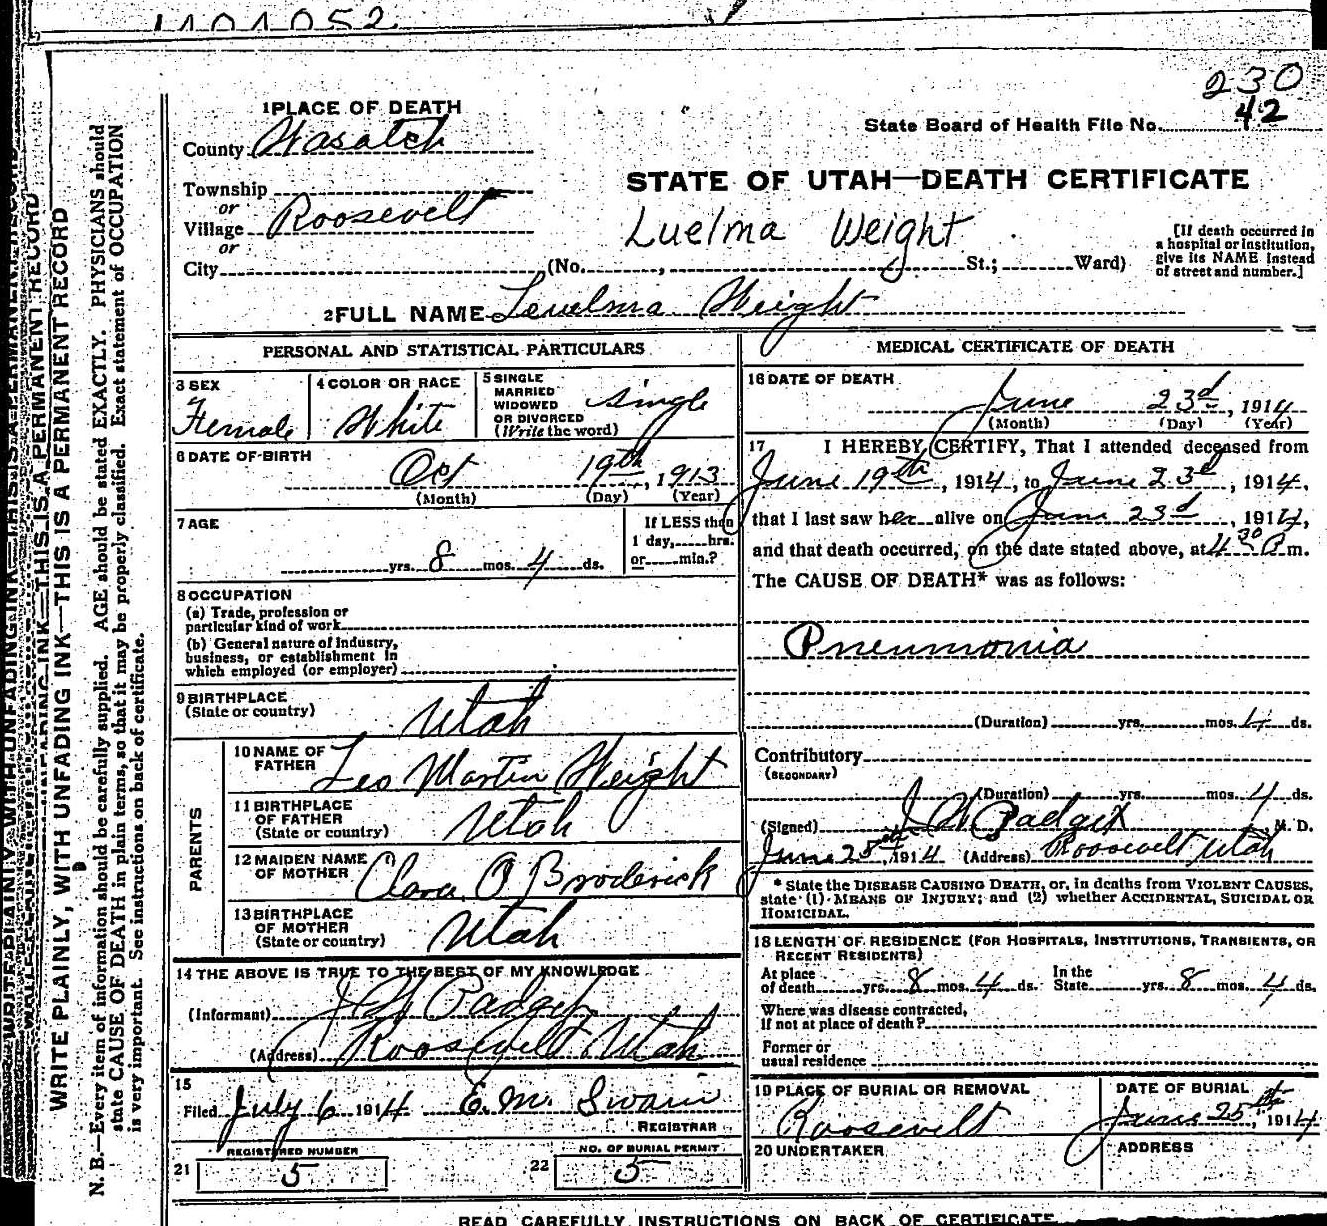 1101052
230
42
1 PLACE OF DEATH
State Board of Health File No.
County Wasatch
STATE OF UTAH—DEATH CERTIFICATE
Township
or
Village Roosevelt
or
Luelma Weight
[If death occurred in
a hospital or institution,
give its NAME instead
of street and number.]
City (No. , St.; Ward)
2 FULL NAME Leuelma Weight
PERSONAL AND STATISTICAL PARTICULARS
3 SEX
Female
4 COLOR OR RACE
White
5 SINGLE
MARRIED
WIDOWED
OR DIVORCED
(Write the word)
single
6 DATE OF BIRTH
Oct 19th, 1913
(Month) (Day) (Year)
7 AGE
yrs. 8 mos. 4 ds.
If LESS than
1 day, hrs.
or min.?
8 OCCUPATION
(a) Trade, profession or
particular kind of work
(b) General nature of Industry,
business, or establishment in
which employed (or employer)
9 BIRTHPLACE
(State or country)
Utah
PARENTS
10 NAME OF
FATHER
Leo Martin Weight
11 BIRTHPLACE
OF FATHER
(State or country)
Utah
12 MAIDEN NAME
OF MOTHER
Clara O Broderick
13 BIRTHPLACE
OF MOTHER
(State or country)
Utah
14 THE ABOVE IS TRUE TO THE BEST OF MY KNOWLEDGE
(Informant) J W Padget
(Address) Roosevelt Utah
15
Filed July 6, 1914 E. M. Swain
REGISTRAR
REGISTERED NUMBER
21 5
NO. OF BURIAL PERMIT
22 5
MEDICAL CERTIFICATE OF DEATH
16 DATE OF DEATH
June 23d, 1914
(Month) (Day) (Year)
17 I HEREBY CERTIFY, That I attended deceased from
June 19th, 1914, to June 23d, 1914,
that I last saw her alive on June 23d, 1914,
and that death occurred, on the date stated above, at 4 30 P m.
The CAUSE OF DEATH* was as follows:
Pneumonia
(Duration) yrs. mos. 4 ds.
Contributory
(SECONDARY)
(Duration) yrs. mos. 4 ds.
(Signed) J W Padget M. D.
June 25th, 1914 (Address) Roosevelt Utah
* State the DISEASE CAUSING DEATH, or, in deaths from VIOLENT CAUSES,
state (1) MEANS OF INJURY; and (2) whether ACCIDENTAL, SUICIDAL OR
HOMICIDAL.
18 LENGTH OF RESIDENCE (FOR HOSPITALS, INSTITUTIONS, TRANSIENTS, OR
RECENT RESIDENTS)
At place
of death yrs. 8 mos. 4 ds.
In the
State yrs. 8 mos. 4 ds.
Where was disease contracted,
If not at place of death?
Former or
usual residence
19 PLACE OF BURIAL OR REMOVAL
Roosevelt
DATE OF BURIAL
June 25th, 1914
20 UNDERTAKER
ADDRESS
READ CAREFULLY INSTRUCTIONS ON BACK OF CERTIFICATE
WRITE PLAINLY, WITH UNFADING INK—THIS IS A PERMANENT RECORD
N. B.—Every item of information should be carefully supplied. AGE should be stated EXACTLY. PHYSICIANS should
state CAUSE OF DEATH in plain terms, so that it may be properly classified. Exact statement of OCCUPATION
is very important. See instructions on back of certificate.